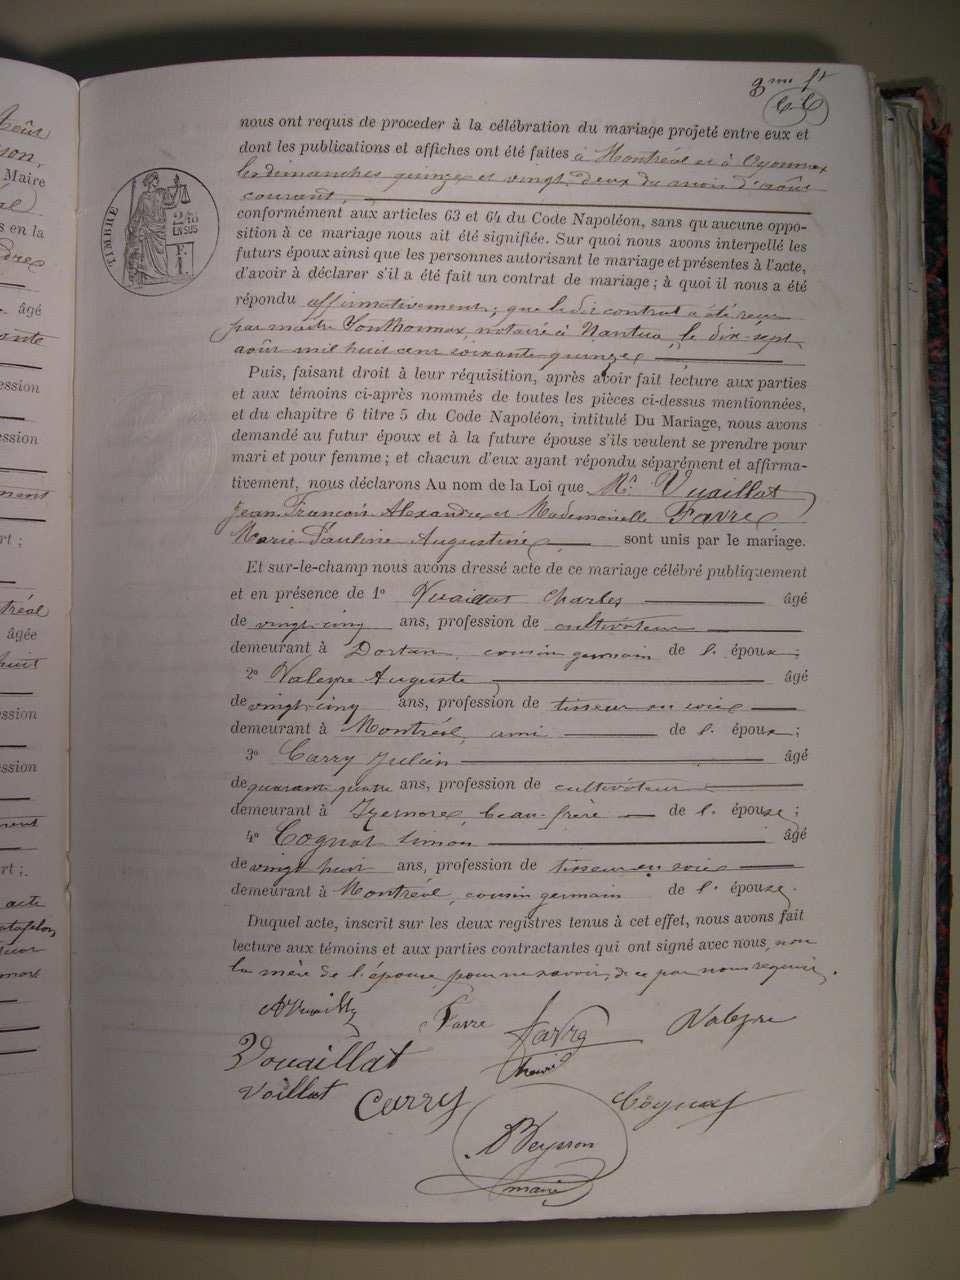 3me ft
nous ont requis de proceder à la célébration du mariage projeté entre eux et
dont les publications et affiches ont été faites à Montréal et à Oyonnax
les dimanches quinze et vingt-deux du mois d'août
courant,
conformément aux articles 63 et 64 du Code Napoléon, sans qu'aucune oppo-
sition à ce mariage nous ait été signifiée. Sur quoi nous avons interpellé les
futurs époux ainsi que les personnes autorisant le mariage et présentes à l'acte,
d'avoir à déclarer s'il a été fait un contrat de mariage ; à quoi il nous a été
répondu affirmativement ; que le dit contrat a été reçu
par maître Southonnax notaire à Nantua, le dix-sept
août mil huit cent soixante-quinze
TIMBRE
2/10
EN SUS
Puis, faisant droit à leur réquisition, après avoir fait lecture aux parties
et aux témoins ci-après nommés de toutes les pièces ci-dessus mentionnées,
et du chapitre 6 titre 5 du Code Napoléon, intitulé Du Mariage, nous avons
demandé au futur époux et à la future épouse s'ils veulent se prendre pour
mari et pour femme ; et chacun d'eux ayant répondu séparément et affirma-
tivement, nous déclarons Au nom de la Loi que Mr. Vuaillat
Jean François Alexandre et Mademoiselle Favre
Marie Pauline Augustine sont unis par le mariage.
Et sur-le-champ nous avons dressé acte de ce mariage célébré publiquement
et en présence de 1º Vuaillat Charles âgé
de vingt-cinq ans, profession de cultivateur
demeurant à Dortan, cousin germain de l. époux ;
2º Valeyre Auguste âgé
de vingt-cinq ans, profession de tisseur en soie
demeurant à Montréal, ami de l. époux ;
3º Carry Julien âgé
de quarante quatre ans, profession de cultivateur
demeurant à Izernore, beau-frère de l. épouse ;
4º Cognat Simon âgé
de vingt huit ans, profession de tisseur en soie
demeurant à Montréal, cousin germain de l. épouse.
Duquel acte, inscrit sur les deux registres tenus à cet effet, nous avons fait
lecture aux témoins et aux parties contractantes qui ont signé avec nous, non
la mère de l'épouse pour ne savoir, de ce par nous requise.
Favre
Favre
Valeyre
Vouaillat
Voillat
Carry
Cognat
maire